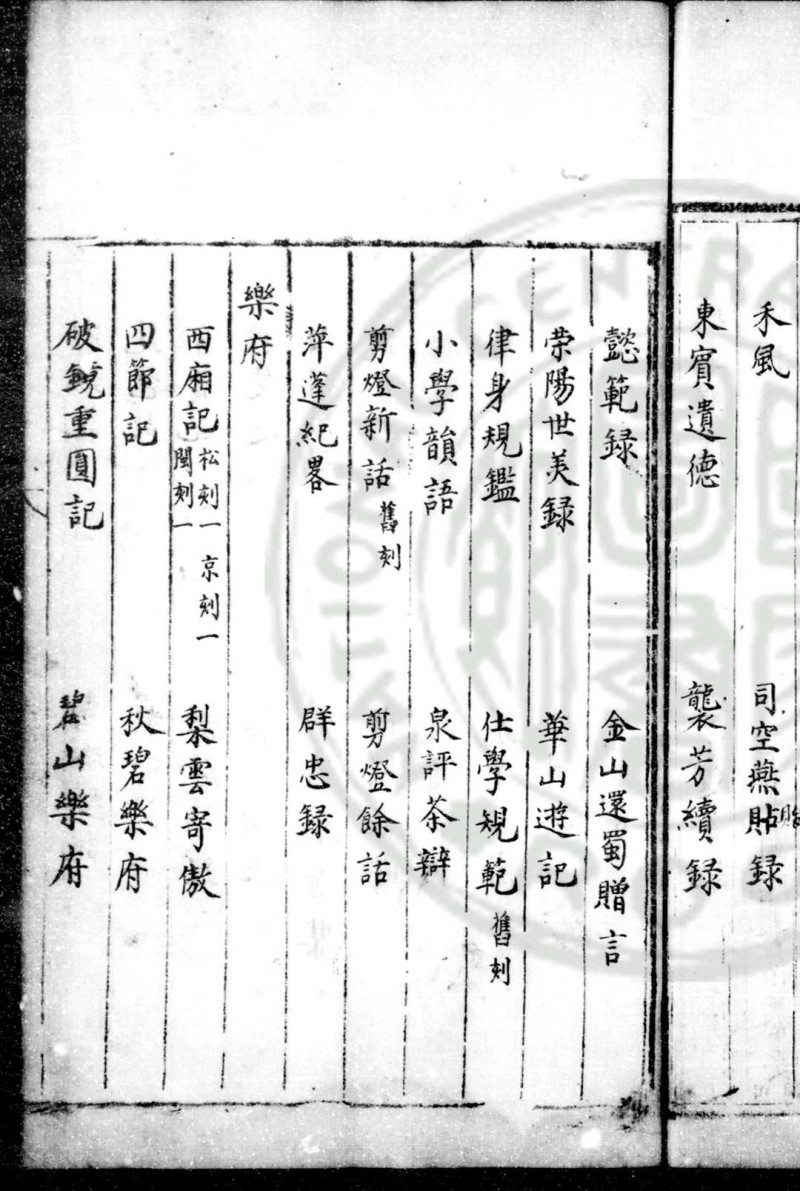 禾風 司空燕貽録
東賓遺德 襲芳續録
懿範録 金山還蜀贈言
荣陽世美録 華山遊記
律身規鑑 仕學規範 舊刻
小學韻語 泉評茶辯
剪燈新話 舊刻 剪燈餘話
萍蓬紀畧 群忠録
樂府
西廂記 松刻一 閩刻一 京刻一 梨雲寄傲
四節記 秋碧樂府
破鏡重圓記 碧山樂府